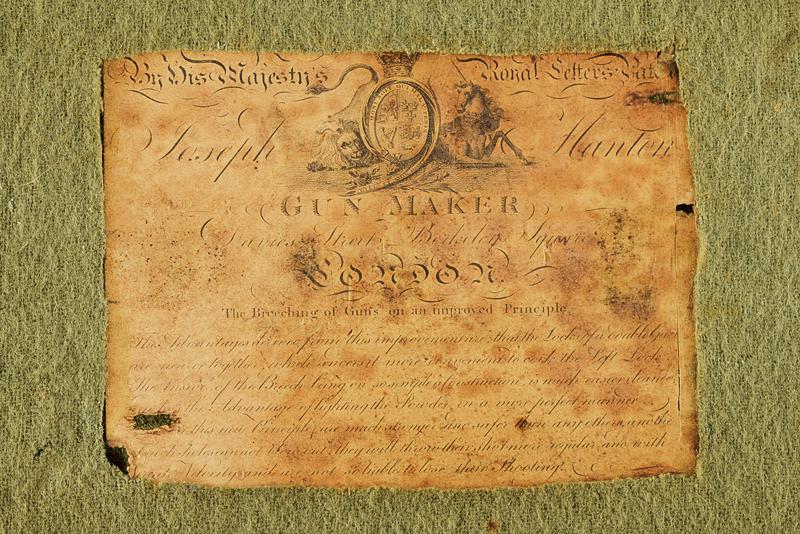 By His Majesty's Royal Letters Pat
Joseph Manton
GUN MAKER
Davies Street Berkeley Square
LONDON
The Breeching of Guns on an improved Principle
The Advantages derived from this improvement are, that the Locks of a double Gun
are nearer together, which renders it more convenient to cock the Left Lock
The inside of the Breech being on so simple a construction is much easier cleaned
the Advantage of lighting the Powder in a more perfect manner
this Principle, are much stronger and safer than any others, and the
holes cannot they will throw their shot more regular and with
and are not so liable to lose their Shooting.